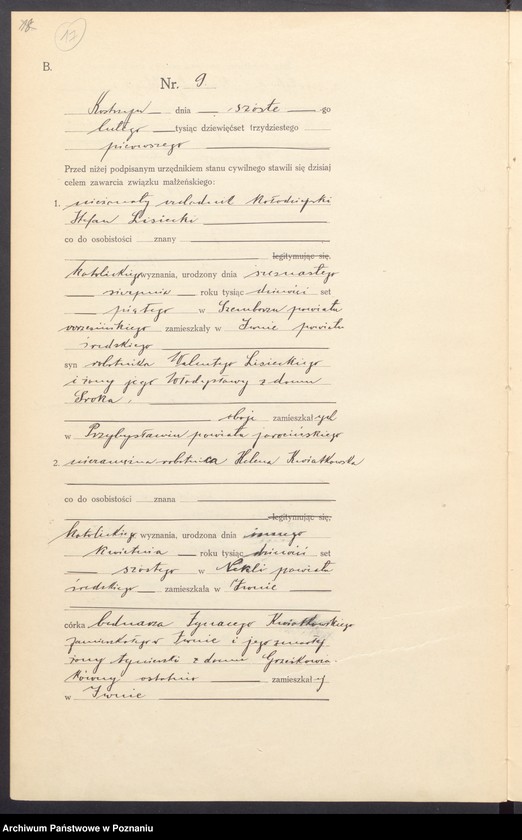 17
B.
Nr. 9
Kostrzyn dnia szóste go
lutego tysiąc dziewięćset trzydziestego
pierwszego
Przed niżej podpisanym urzędnikiem stanu cywilnego stawili się dzisiaj
celem zawarcia związku małżeńskiego:
1. nieżonaty czeladnik kołodziejski
Stefan Lisiecki
co do osobistości znany
legitymując się,
katolickiego wyznania, urodzony dnia szesnastego
sierpnia roku tysiąc dziewięć set
piątego w Szemborzu powiatu
wrzesińskiego zamieszkały w Iwnie powiatu
średzkiego
syn robotnika Walentego Lisieckiego
i żony jego Władysławy z domu
Sroka,
oboje zamieszkałych
w Przybysławiu powiatu jarocińskiego
2. niezamężna robotnica Helena Kwiatkowska
co do osobistości znana
legitymując się,
katolickiego wyznania, urodzona dnia
kwietnia roku tysiąc dziewięć set
szóstego w Nekli powiatu
średzkiego zamieszkała w Iwnie
córka bednarza Ignacego Kwiatkowskiego
zamieszkałego w Iwnie i jego zmarłej
żony Agnieszki z domu
ostatnio zamieszkałej
w Iwnie
Archiwum Państwowe w Poznaniu